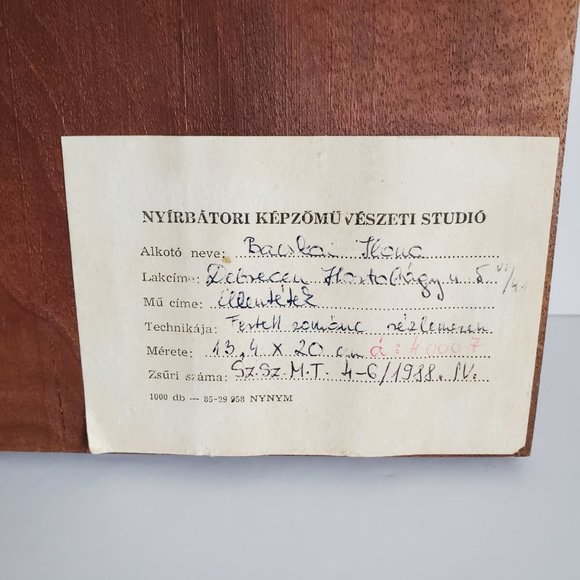 NYÍRBÁTORI KÉPZŐMŰVÉSZETI STUDIÓ
Alkotó neve: Bacskai Ilona
Lakcíme: Debrecen Hortobágy u 5
Mű címe: Ellentétek
Technikája: Festett zománc rézlemezen
Mérete: 13,4 x 20 cm á: 4000 F
Zsűri száma: Sz.Sz.M.T. 4-6/1988. IV.
1000 db — 85-29 958 NYNYM